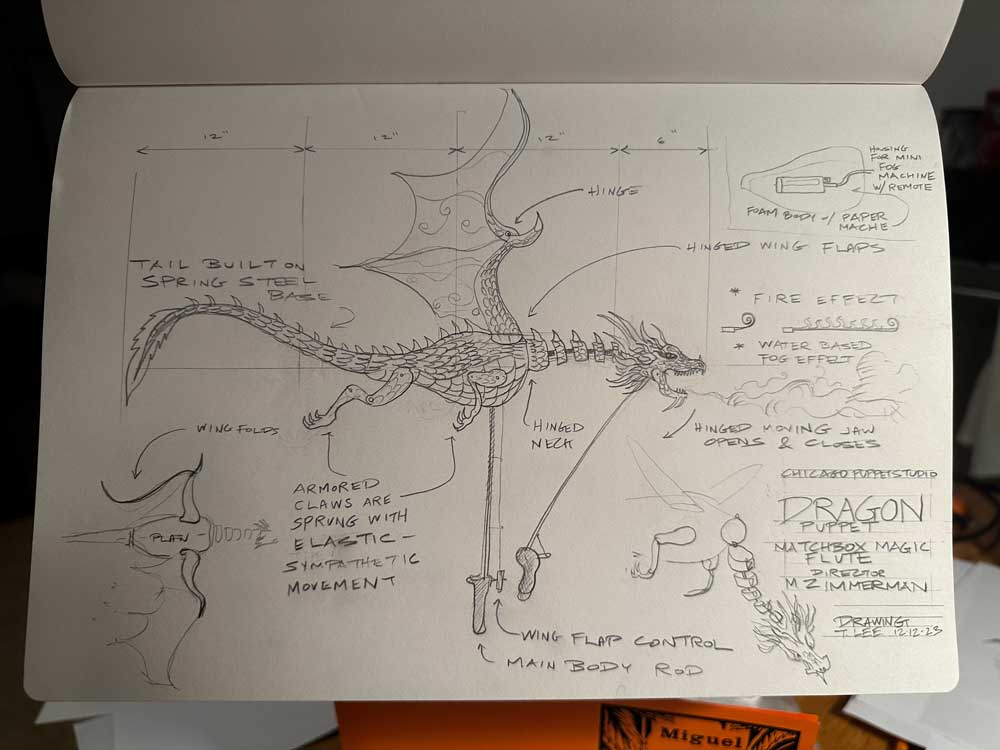 12"
12"
12"
6"
HOUSING
FOR MINI
FOG
MACHINE
W/ REMOTE
FOAM BODY W/ PAPER
MACHE
HINGE
HINGED WING FLAPS
TAIL BUILT ON
SPRING STEEL
BASE
* FIRE EFFECT
* WATER BASED
FOG EFFECT
HINGED
NECK
HINGED MOVING JAW
OPENS & CLOSES
WING FOLDS
PLAN
ARMORED
CLAWS ARE
SPRUNG WITH
ELASTIC -
SYMPATHETIC
MOVEMENT
WING FLAP CONTROL
MAIN BODY ROD
CHICAGO PUPPET STUDIO
DRAGON
PUPPET
MATCHBOX MAGIC
FLUTE
DIRECTOR
M ZIMMERMAN
DRAWING
T. LEE 12.12.23
Miguel